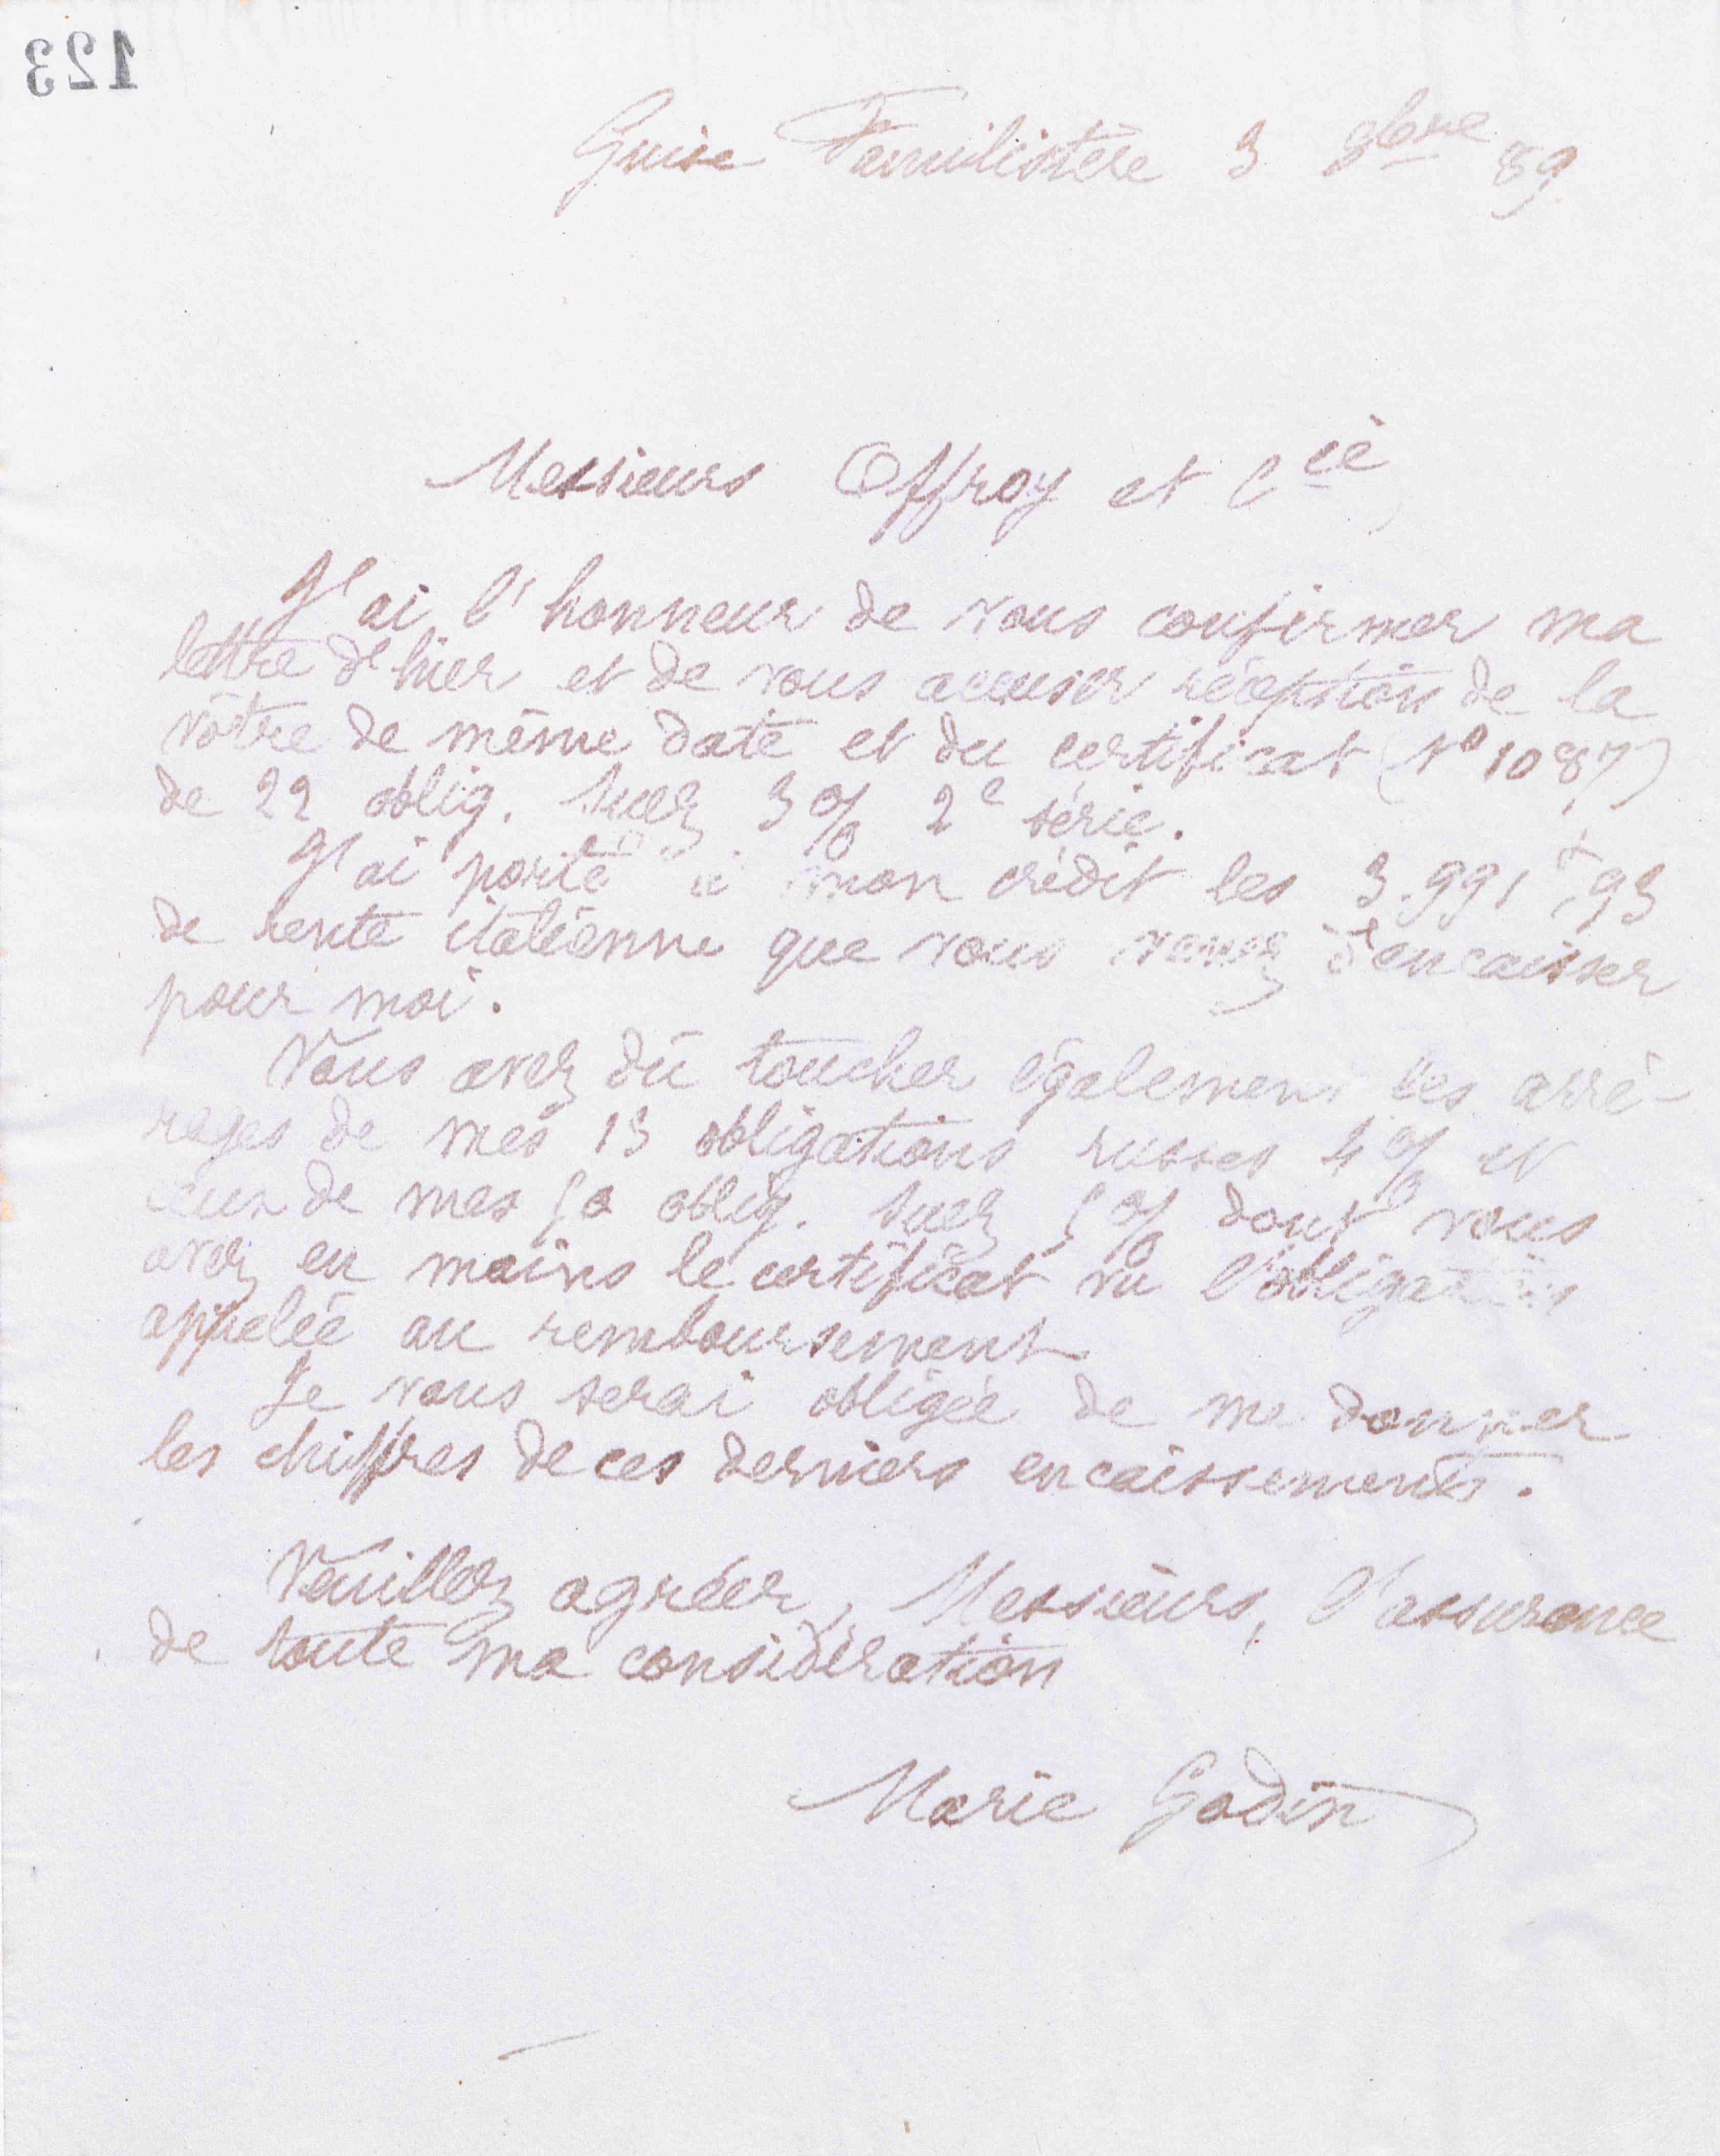 123
Guise Familistère 3 8bre 89
Messieurs Offroy et Cie,
J'ai l'honneur de vous confirmer ma
lettre d'hier et de vous accuser réception de la
vôtre de même date et du certificat (No 1087)
de 22 oblig. Suez 3 % 2e série.
J'ai porté à mon crédit les 3.991f,93
de rente italienne que vous venez d'encaisser
pour moi.
Vous avez dû toucher également les arré-
rages de mes 13 obligations russes 4 % et
ceux de mes 50 oblig. Suez 5 % dont vous
avez en mains le certificat vu l'obligation
appelée au remboursement
Je vous serai obligée de me donner
les chiffres de ces derniers encaissements.
Veuillez agréer, Messieurs, l'assurance
de toute ma considération
Marie Godin